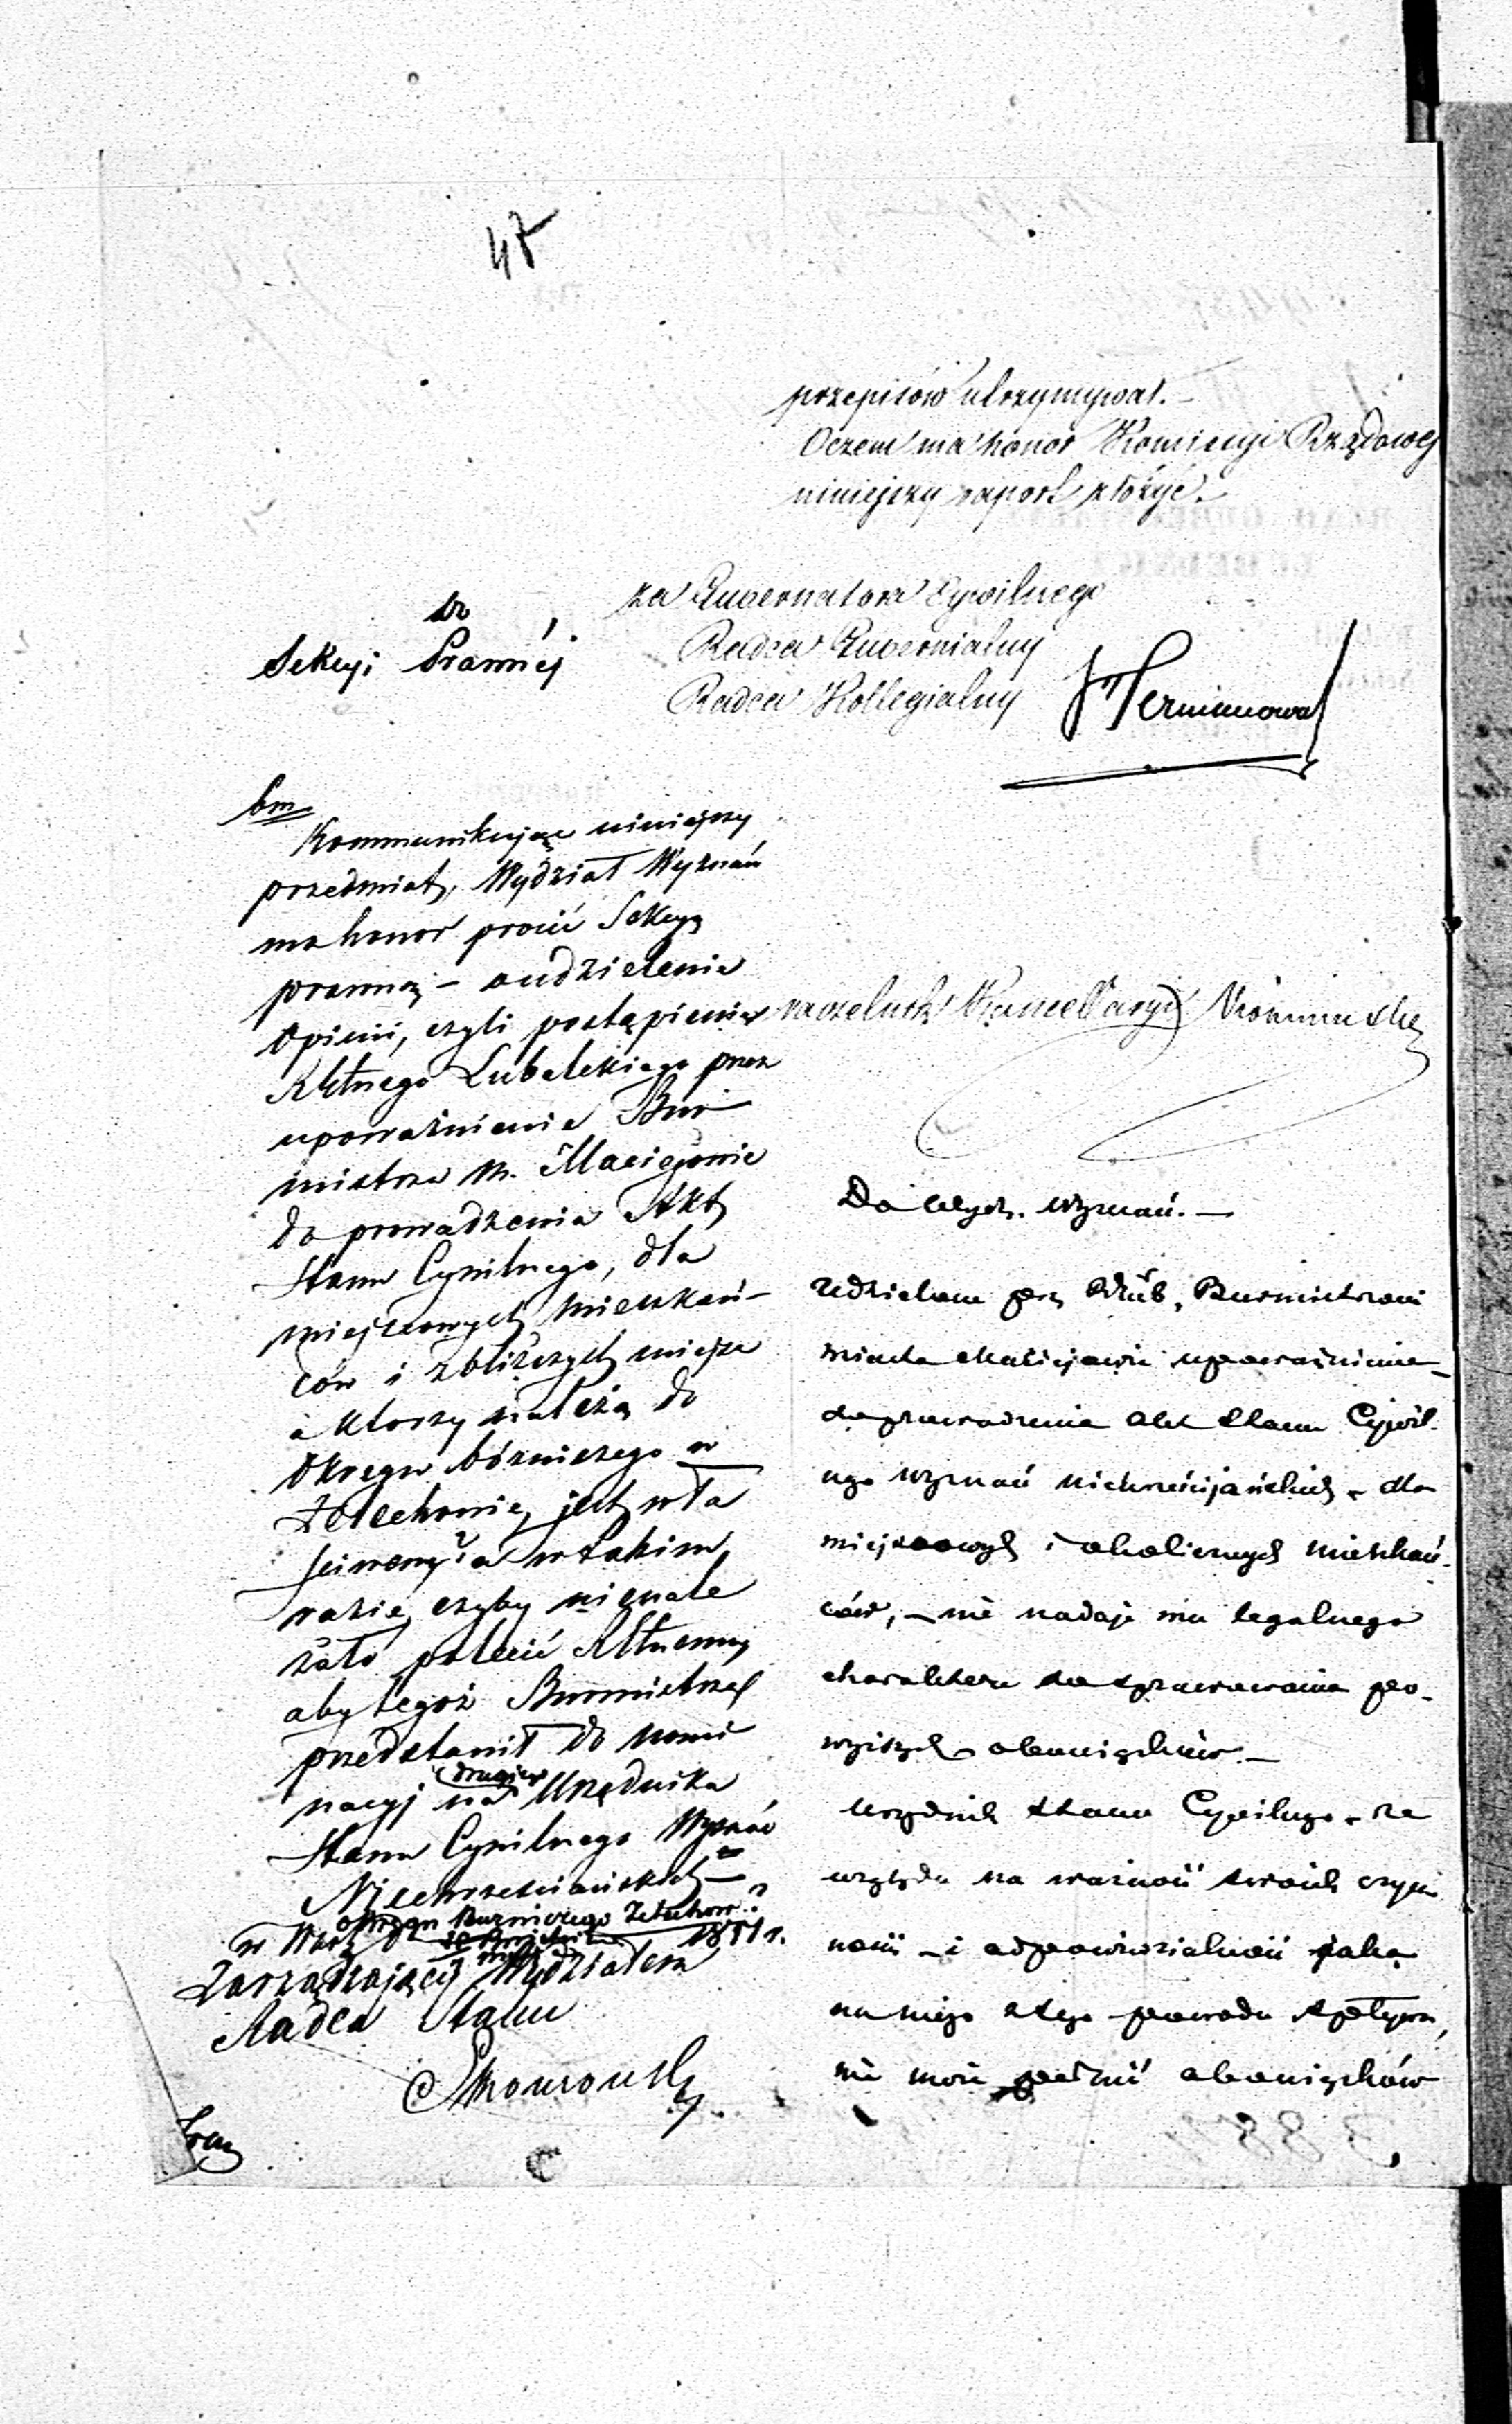 47
przepisów utrzymywał. —
O czem ma honor Kommissyi Rządowej
niniejszy raport złożyć. —
za Gubernatora Cywilnego
Radca Gubernialny
Radca Kollegialny
do
Sekcyi Prawnéj
bm
Kommunikując niniejszy
przedmiot, Wydział Wyznań
ma honor prosić Sekcyą
prawną — o udzielenie
Opinii, czyli postąpienie
Rządu Gubernialnego Lubelskiego przez
upoważnienie Bur
mistrza m. Maciejowic
do prowadzenia Akt
Stanu Cywilnego, dla
miejscowych mieszkań-
ców i zbliższych miejsc
a którzy należą do
Okręgu bóżniczego w
Żelechowie, jest wła
ściwem, a w takim
razie, czyby nienale
żało polecić
aby tegoż Burmistrza
przedstawił do nomi
nacyi na drugiego Urzędnika
Stanu Cywilnego Wyznań
Niechrześciańskich
okręgu Bużniczego Żelechow.?
w Warsz d. 1851 r.
Zarządzający Wydziałem
Radca Stanu
Naczelnik Kancellaryi
Do Wydz. Wyznań. —
Udzielone przez Burmistrzowi
miasta Maciejowic upoważnienie —
do prowadzenia akt stanu Cywil-
nego wyznań niechrześcijańskich — dla
miejscowych i okolicznych mieszkań-
ców, — nie nadaje mu legalnego
charakteru do sprawowania po-
wyższych obowiązków. —
Urzędnik stanu Cywilnego — ze
względu na ważność swoich czyn
ności — i odpowiedzialności jaka
na niego z tego powodu spływa,
nie może pełnić obowiązków